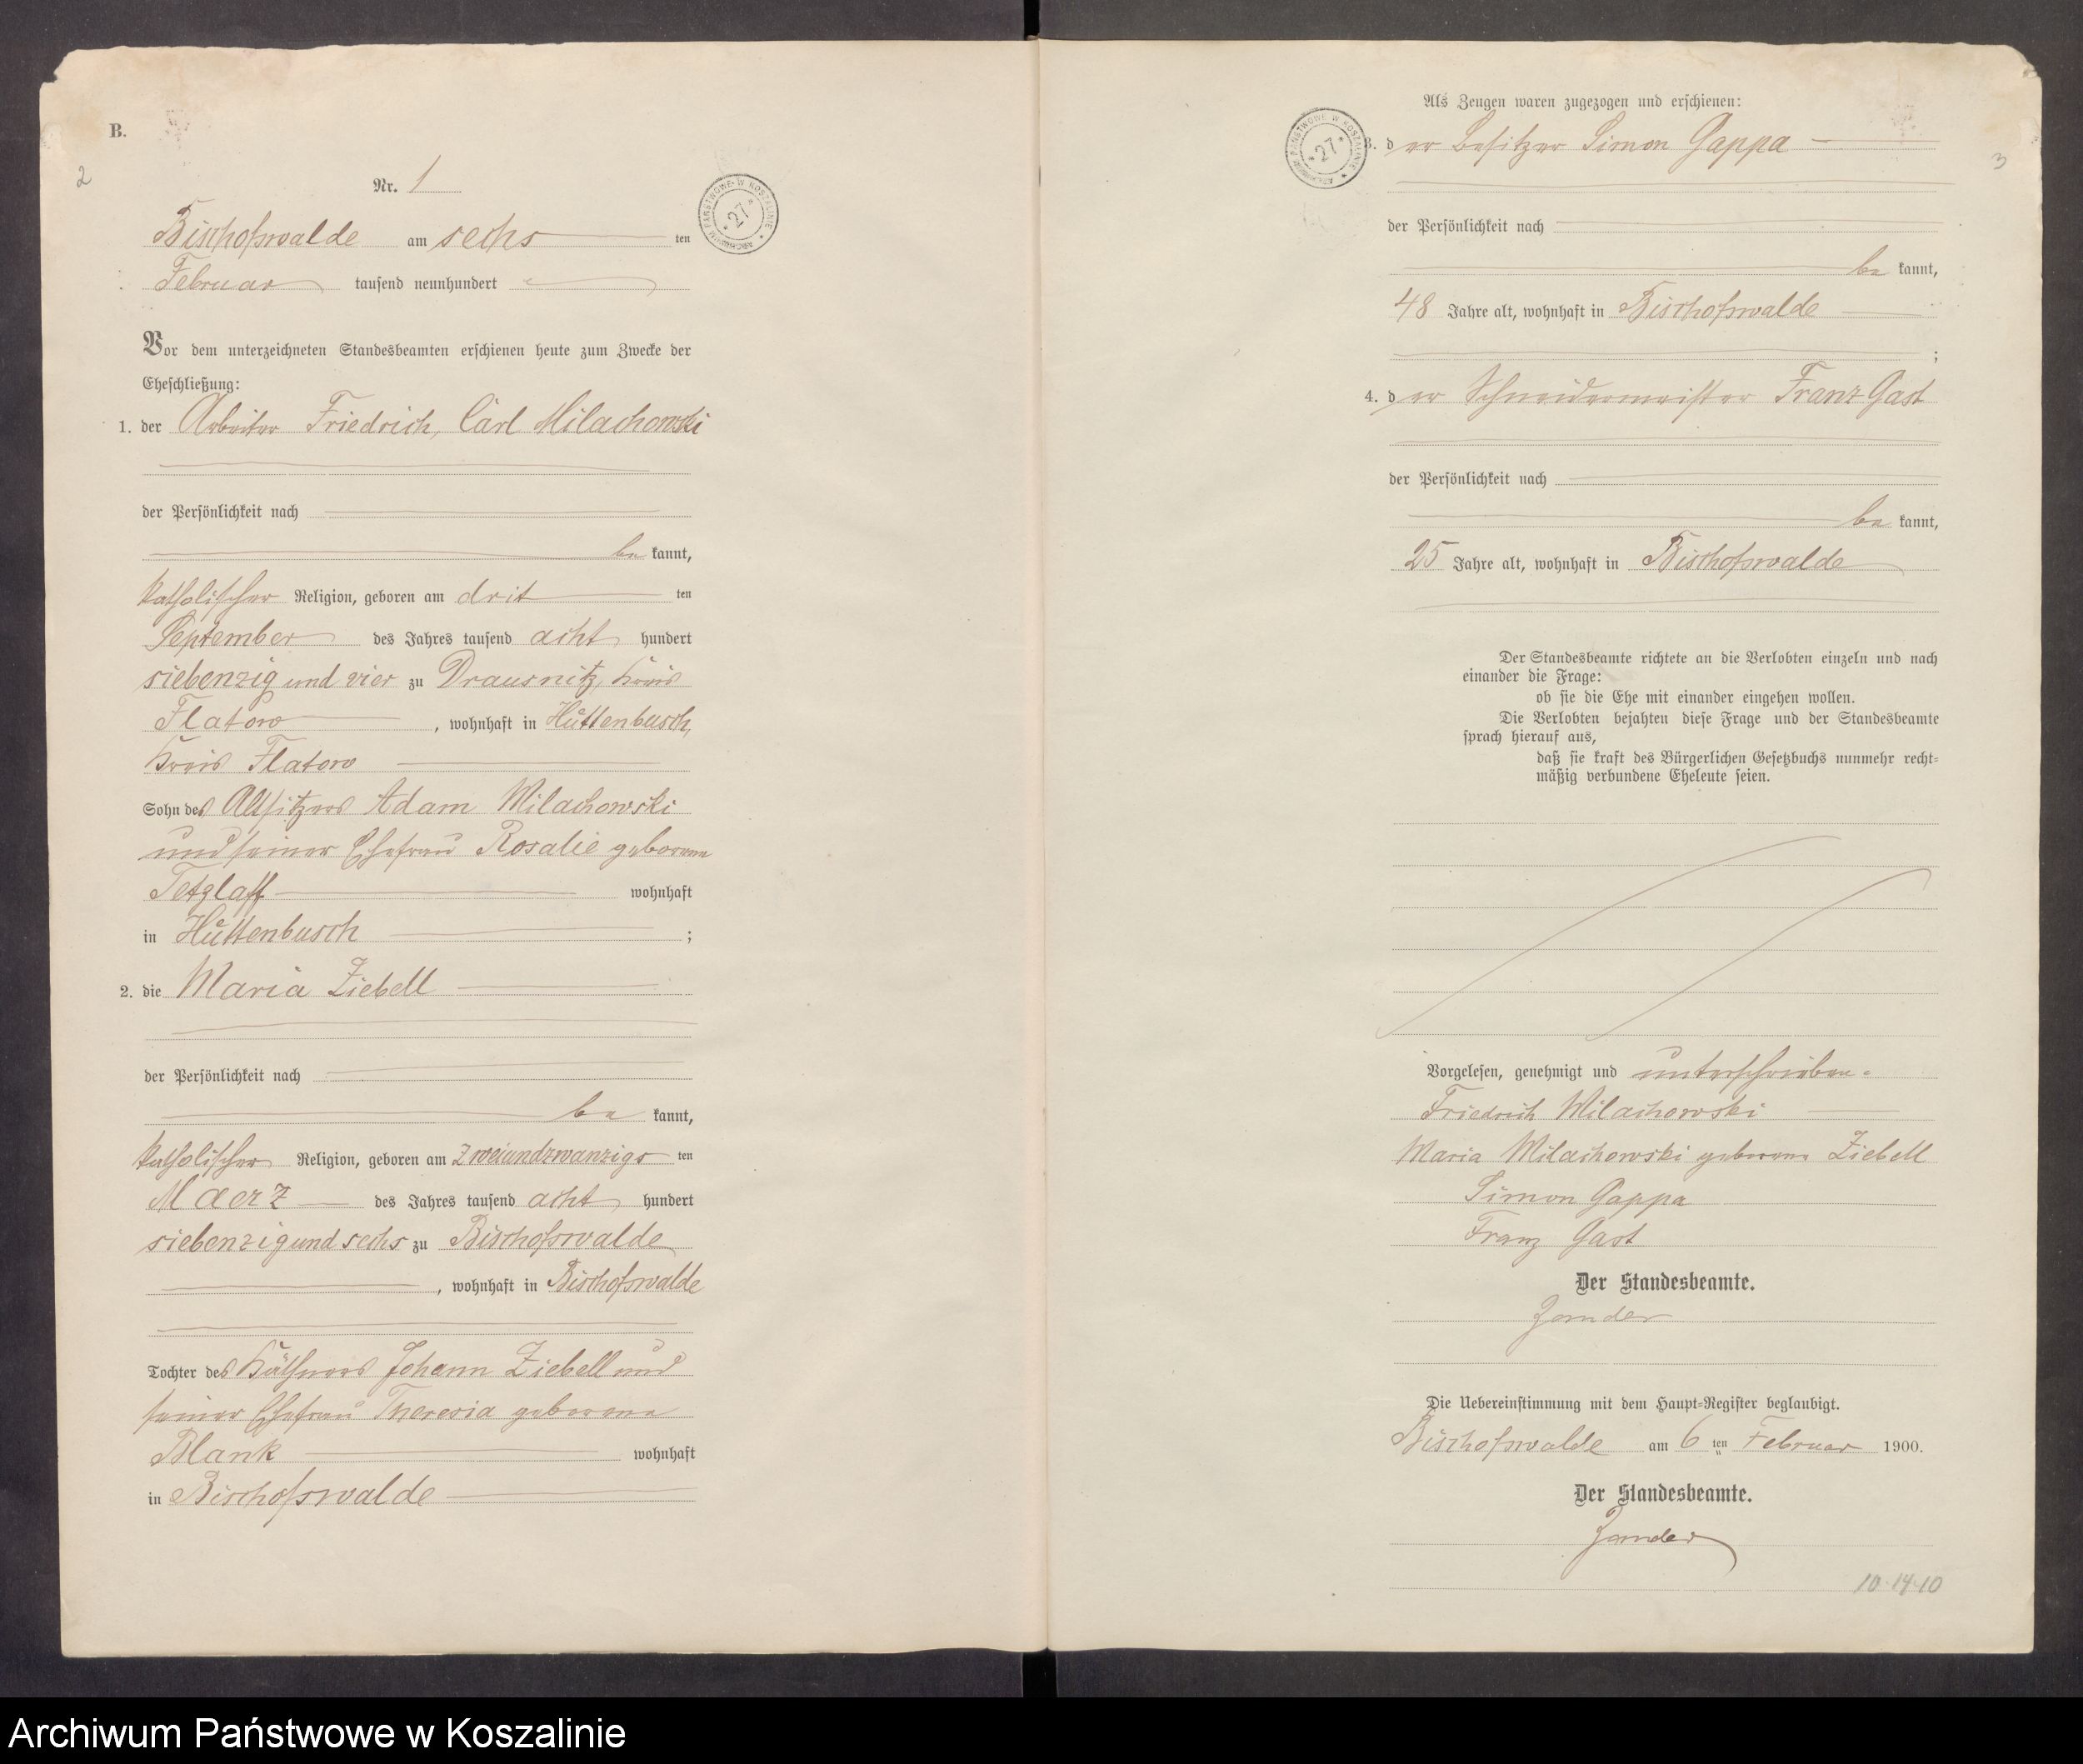 B.
2
Nr. 1
ARCHIWUM PAŃSTWOWE W KOSZALINIE * 27 *
Bischofswalde am sechs ten
Februar tausend neunhundert
Vor dem unterzeichneten Standesbeamten erschienen heute zum Zwecke der
Eheschließung:
1. der Arbeiter Friedrich, Carl Milachowski
der Persönlichkeit nach
be kannt,
katholischer Religion, geboren am drit ten
September des Jahres tausend acht hundert
siebenzig und vier zu Drausnitz, Kreis
Flatow, wohnhaft in Hüttenbusch,
Kreis Flatow
Sohn des Altsitzers Adam Milachowski
und seiner Ehefrau Rosalie geborene
Tetzlaff wohnhaft
in Hüttenbusch ;
2. die Maria Ziebell
der Persönlichkeit nach
be kannt,
katholischer Religion, geboren am zweiundzwanzigs ten
Maerz des Jahres tausend acht hundert
siebenzig und sechs zu Bischofswalde
, wohnhaft in Bischofswalde
Tochter des Käthners Johann Ziebell und
seiner Ehefrau Theresia geborene
Blank wohnhaft
in Bischofswalde
Als Zeugen waren zugezogen und erschienen:
ARCHIWUM PAŃSTWOWE W KOSZALINIE * 27 *
3. der Besitzer Simon Gappa
3
der Persönlichkeit nach
be kannt,
48 Jahre alt, wohnhaft in Bischofswalde
;
4. der Schneidermeister Franz Gast
der Persönlichkeit nach
be kannt,
25 Jahre alt, wohnhaft in Bischofswalde
Der Standesbeamte richtete an die Verlobten einzeln und nach
einander die Frage:
ob sie die Ehe mit einander eingehen wollen.
Die Verlobten bejahten diese Frage und der Standesbeamte
sprach hierauf aus,
daß sie kraft des Bürgerlichen Gesetzbuchs nunmehr recht-
mäßig verbundene Eheleute seien.
Vorgelesen, genehmigt und unterschrieben.
Friedrich Milachowski
Maria Milachowski geborene Ziebell
Simon Gappa
Franz Gast
Der Standesbeamte.
Zander
Die Uebereinstimmung mit dem Haupt-Register beglaubigt.
Bischofswalde am 6 ten Februar 1900.
Der Standesbeamte.
Zander
10-14-10
Archiwum Państwowe w Koszalinie